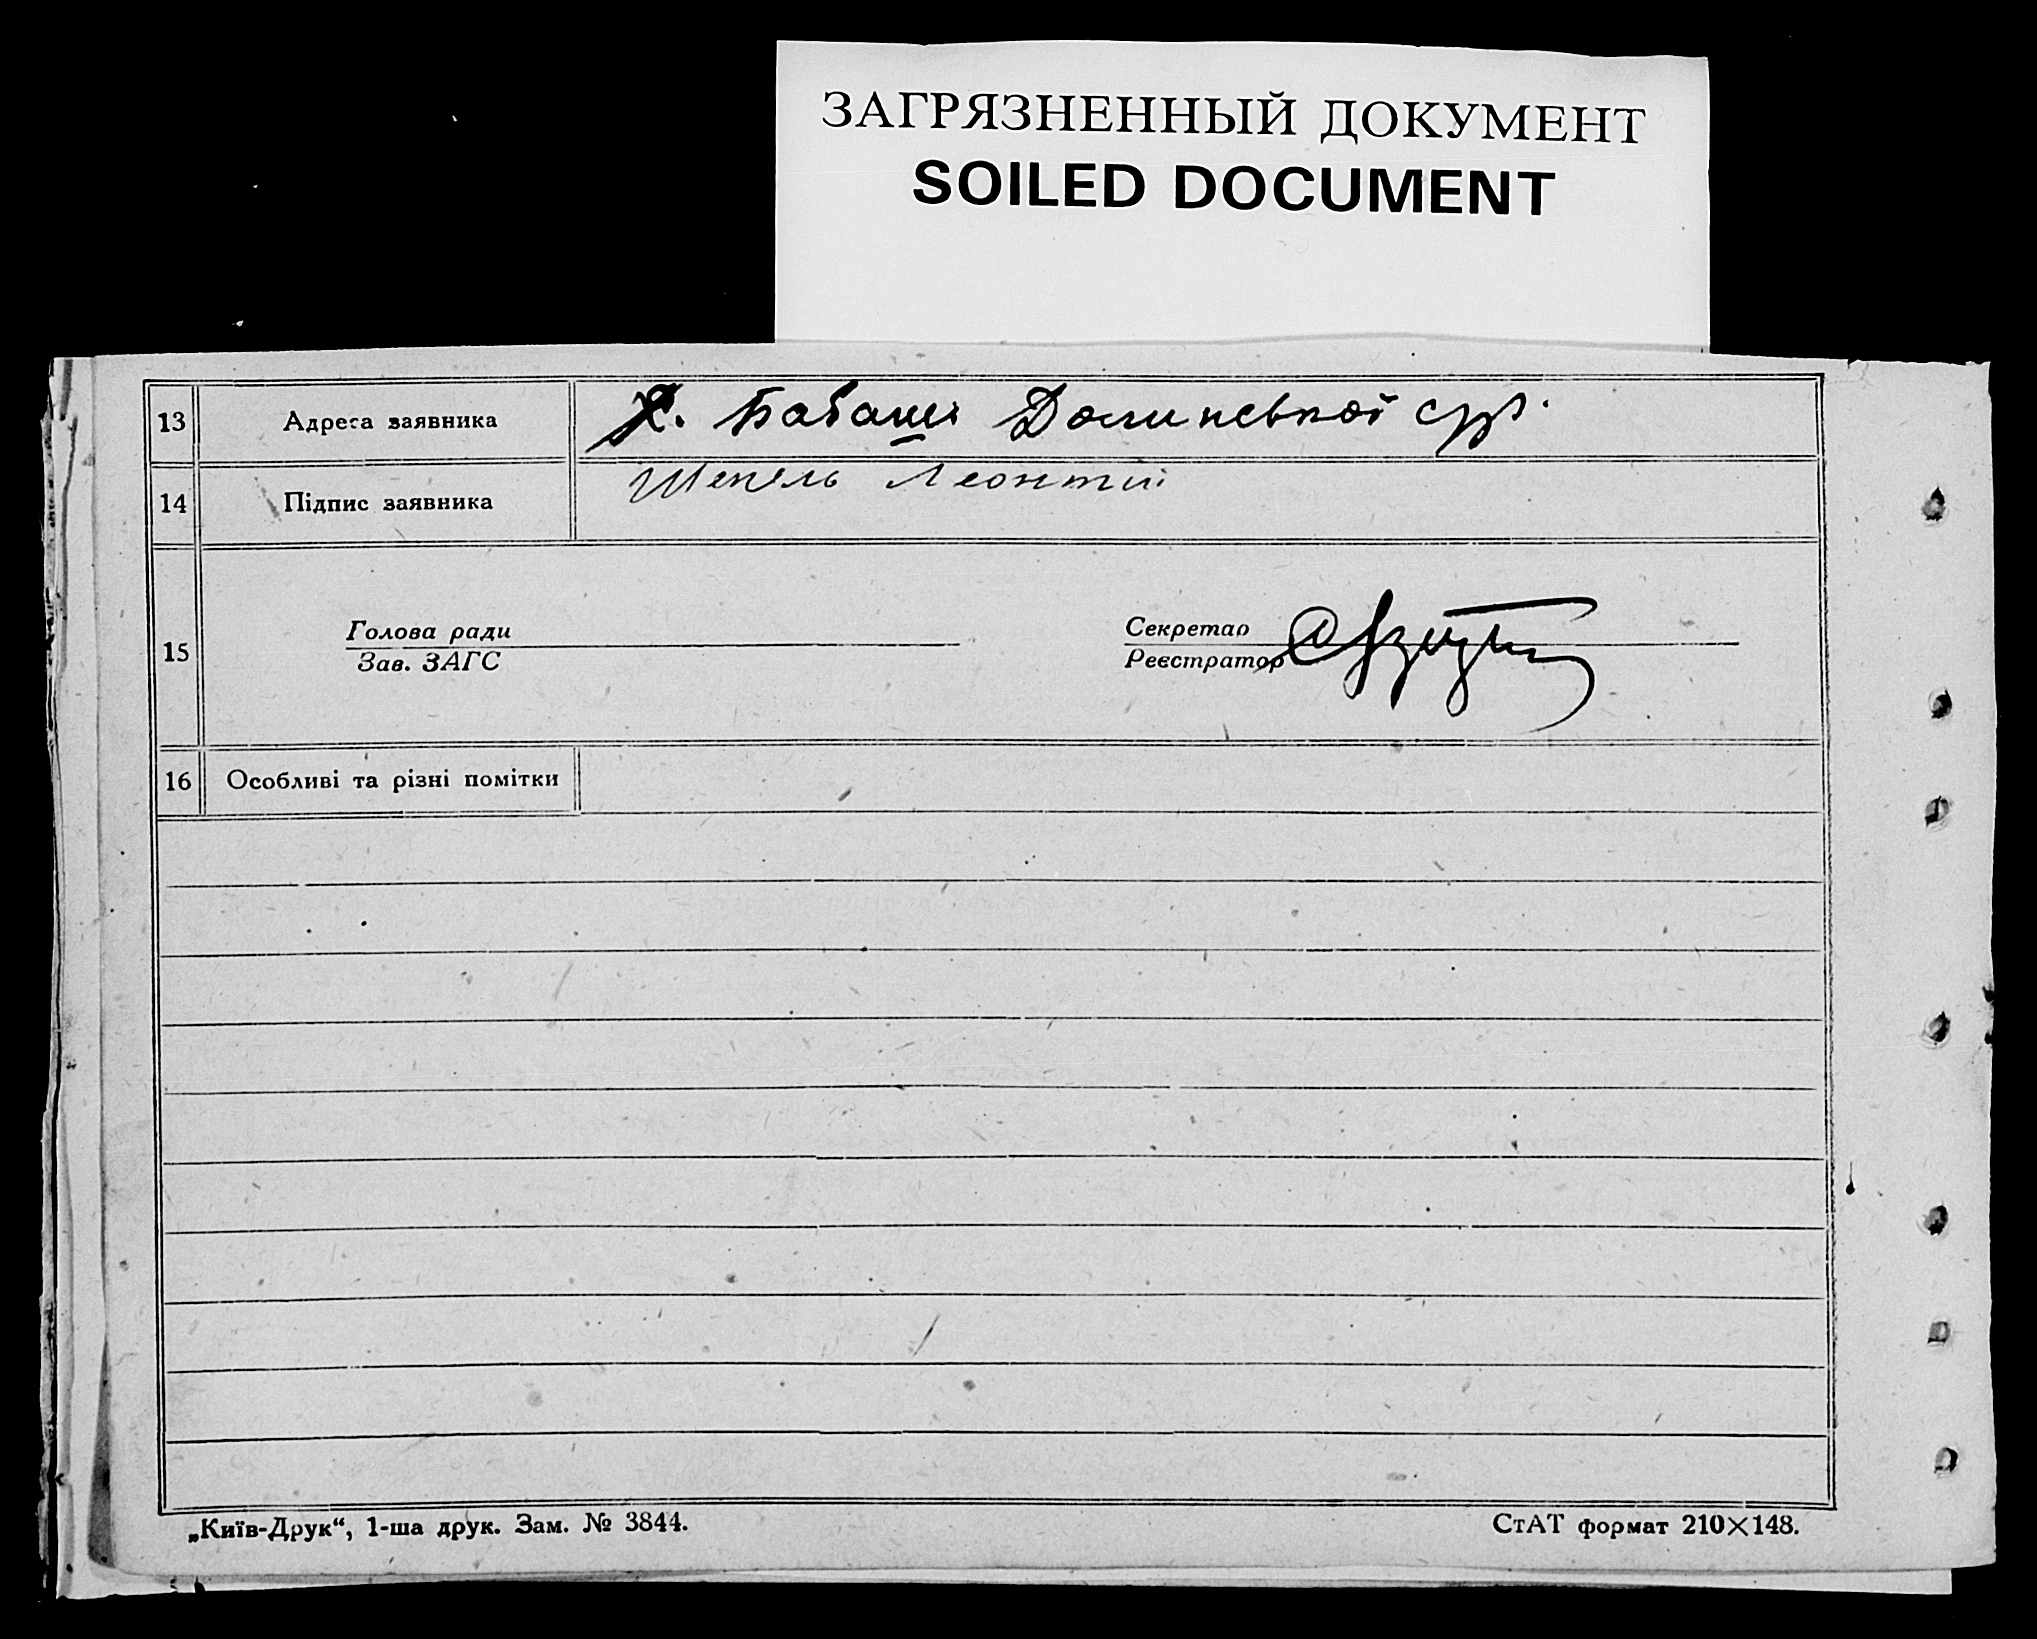 ЗАГРЯЗНЕННЫЙ ДОКУМЕНТ
SOILED DOCUMENT
13 Адреса заявника Х. Бабаші Долинської с/р.
14 Підпис заявника Шепель Леонтий
15 Голова ради
Зав. ЗАГС
Секретар
Реєстратор
16 Особливі та різні помітки
„Київ-Друк“, 1-ша друк. Зам. № 3844.
СтАТ формат 210×148.